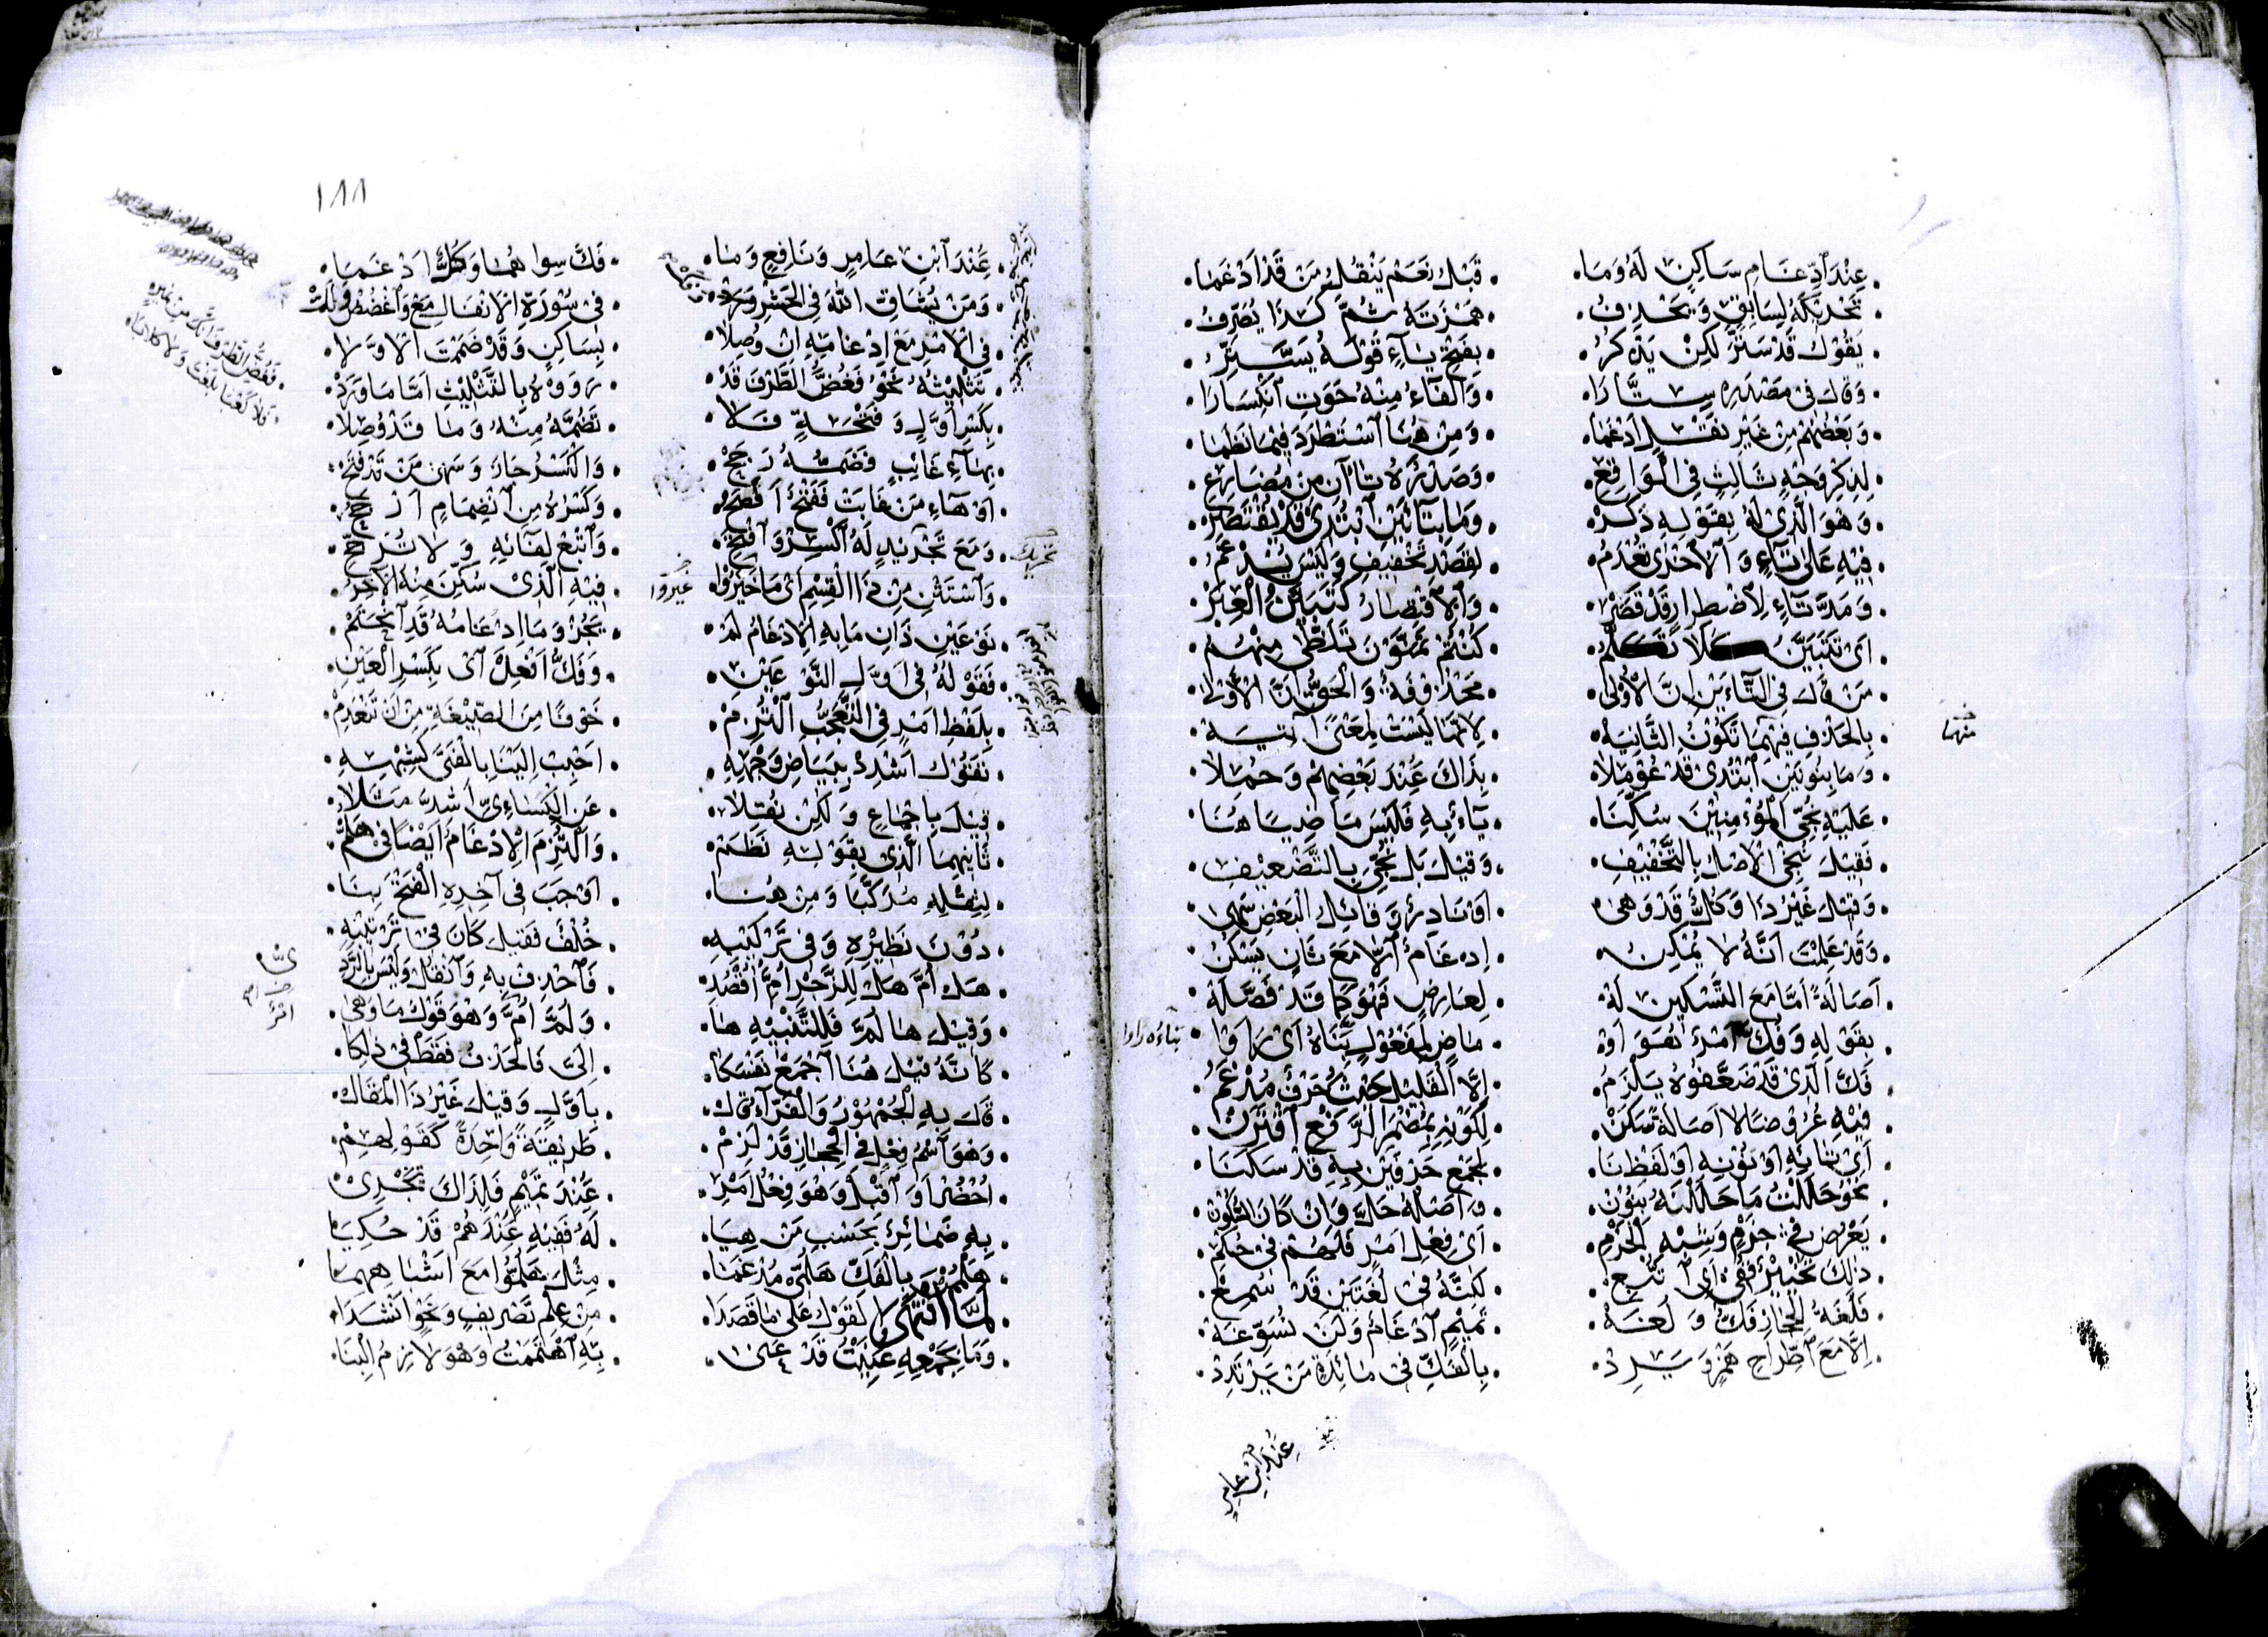 عِنْدَ ادِّغَامِ سَاكِنٍ لَهُ وَمَا قَبْلُ نَعَمْ يَنْقُلُ مَنْ قَدْ أَدْغَمَا
تَحْرِيكَهُ لِسَابِقٍ وَيَحْذِفُ هَمْزَتَهُ ثُمَّ كَذَا يُصَرِّفُ
يَقُولُ قَدْ سَتَّرَ لَكِنْ يَذْكُرُ بِفَتْحِ يَاءٍ قَوْلَهُ يَسَتِّرُ
وَقَالَ فِي مَصْدَرِهِ سِتَّارَا وَالْفَاءُ مِنْهُ حَوَتِ انْكِسَارَا
وَبَعْضُهُمْ مِنْ غَيْرِ نَقْلٍ أَدْغَمَا وَمِنْ هُنَا اسْتَطْرَدَ فِيمَا نَظَمَا
لِذِكْرِ وَجْهٍ ثَالِثٍ فِي الْوَاقِعِ وَصَدْرُهُ تَاآنِ مِنْ مُضَارِعِ
وَهْوَ الَّذِي لَهُ بِقَوْلِهِ ذَكَرْ وَمَا بِتَاءَيْنِ ابْتُدِي قَدْ يُقْتَصَرْ
فِيهِ عَلَى تَاءٍ وَالْأُخْرَى تُعْدَمُ لِقَصْدِ تَخْفِيفٍ وَلَيْسَ يُدْغَمُ
وَمَدَّ تَاءٍ لِاضْطِرَارٍ قَدْ قَصَرْ وَالِاقْتِصَارُ كَتَبَيَّنُ الْعِبَرْ
أَيْ تَتَبَيَّنُ كَلَا تَكَلَّمُ كُنْتُمْ تَمَنَّوْنَ تَلَظَّى مِنْهُمُ
مَنْ قَالَ فِي التَّاءَيْنِ إِنَّ الْأُولَى مَحْذُوفَةٌ وَالْحَقُّ أَنَّ الْأَوْلَى
بِالْحَذْفِ فِيهِمَا تَكُونُ الثَّانِيَهْ لِأَنَّهَا لَيْسَتْ لِمَعْنًى آتِيَهْ
وَمَا بِنُونَيْنِ ابْتُدِي قَدْ عُومِلَا بِذَاكَ عِنْدَ بَعْضِهِمْ وَحُمِلَا
عَلَيْهِ نُجِّي الْمُؤْمِنِينَ سُكِّنَا يَاءٌ بِهِ فَلَيْسَ مَاضِيًا هُنَا
فَقِيلَ نُنْجِي الْأَصْلُ بِالتَّخْفِيفِ وَقِيلَ بَلْ نُنَجِّيَ بِالتَّضْعِيفِ
وَقِيلَ غَيْرُ ذَا وَكُلٌّ قَدْ وَهَى أَوْ نَادِرٌ وَقَائِلُ الْبَعْضِ سَهَا
وَقَدْ عَلِمْتَ أَنَّهُ لَا يُمْكِنُ إِدْغَامٌ الَّا مَعَ ثَانٍ يَسْكُنُ
أَصَالَةً أَمَّا مَعَ التَّسْكِينِ لَهْ لِعَارِضٍ فَهْوَ كَمَا قَدْ فَصَّلَهْ
بِقَوْلِهِ وَفُكَّ أَمْرٌ نَقَوْا أَوْ مَاضٍ لِمَفْعُولٍ بِنَاهُ أَيْ رَأَوْا
فَكَّ الَّذِي قَدْ ضَعَّفُوهُ يَلْزَمُ إِلَّا الْقَلِيلَ حَيْثُ حَرْفٌ مُدْغَمُ
فِيهِ عُرُوضًا لَا أَصَالَةً سَكَنْ لِكَوْنِهِ بِمُضْمَرِ الرَّفْعِ اقْتَرَنْ
أَيْ تَائِهِ أَوْ نُونِهِ أَوْ لَفْظِ نَا لِجَمْعِ حَرْفَيْنِ بِهِ قَدْ سَكَنَا
نَحْوُ حَلَلْتُ مَا حَلَلْتَهُ بِنُونْ وَأَصْلُهُ حَلَّ وَإِنْ كَانَ السُّكُونْ
يَعْرِضُ فِي جَزْمٍ وَشِبْهِ الْجَزْمِ أَيْ فِعْلِ أَمْرٍ فَلَهُمْ فِي حُكْمِ
ذَلِكَ تَخْيِيرٌ قُفِي أَيِ اتُّبِعْ لَكِنَّهُ فِي لُغَتَيْنِ قَدْ سُمِعْ
فَلُغَةُ الْحِجَازِ فَكٌّ وَلُغَهْ تَمِيمٍ ادْغَامٌ وَلَنْ نُسَوِّغَهْ
إِلَّا مَعَ اطِّرَاحِ هَمْزٍ وَيَرِدْ بِالْفَكِّ فِي مَائِدَةٍ مَنْ يَرْتَدِدْ
منهما
عِنْدَ ابْنِ عَامِرٍ
١٨٨
عِنْدَ ابْنِ عَامِرٍ وَنَافِعٍ وَمَا فَكَّ سِوَاهُمَا وَكُلٌّ أَدْغَمَا
وَمَنْ يُشَاقِّ اللَّهَ فِي الْحَشْرِ وَرَدْ فِي سُورَةِ الْأَنْفَالِ مَعْ وَاغْضُضْ
فِي الْأَمْرِ مَعْ إِدْغَامِهِ إِنْ وُصِلَا بِسَاكِنٍ وَقَدْ ضَمَمْتَ الْأَوَّلَا
تَثْلِيثُهُ نَحْوُ فَغُضَّ الطَّرْفَ قَدْ رَوَوْهُ بِالتَّثْلِيثِ أَمَّا مَا وَرَدْ
بِكَسْرِ أَوَّلٍ وَفَتْحَةٍ فَلَا تَضُمَّهُ مِنْهُ وَمَا قَدْ وُصِلَا
بِهَاءِ غَائِبٍ فَضَمُّهُ رَجَحْ وَالْكَسْرُ جَازَ وَسَهَى مَنْ قَدْ فَتَحْ
أَوْ هَاءِ مَنْ غَابَتْ فَفَتْحٌ أَفْصَحُ وَكَسْرُهُ مِنِ انْضِمَامٍ أَرْجَحُ
وَمَعَ تَجْرِيدٍ لَهُ اكْسِرْ وَافْتَحْ وَأَتْبِعْ لِفَائِهِ وَلَا تُرَجِّحْ
وَاسْتَثْنِ مِنْ ذَا الْقِسْمِ أَيْ مَا خَيَّرُوا فِيهِ الَّذِي سُكِّنَ مِنْهُ الْآخِرُ
نَوْعَيْنِ ذَانِ مَا بِهِ الْإِدْغَامُ لَمْ يَجُزْ وَمَا إِدْغَامُهُ قَدِ انْحَتَمْ
فَقَوْلُهُ فِي أَوَّلِ النَّوْعَيْنِ وَفَكُّ أَفْعِلْ أَيْ بِكَسْرِ الْعَيْنِ
بِلَفْظِ أَمْرٍ فِي التَّعَجُّبِ الْتُزِمْ خَوْفًا مِنَ الصِّيغَةِ مِنْ أَنْ تَنْعَدِمْ
نَقُولُ أَشْدِدْ بِبَيَاضِ وَجْهِهِ أَحْبِبْ إِلَيْنَا بِالْفَتَى كَشِبْهِهِ
قِيلَ بِإِجْمَاعٍ وَلَكِنْ نُقِلَا عَنِ الْكِسَائِيِّ أَشَدَّ مَثَلَا
ثَانِيهِمَا الَّذِي بِقَوْلِهِ نَظَمْ وَالْتُزِمَ الْإِدْغَامُ أَيْضًا فِي هَلُمّْ
لِثِقْلِهِ مُرَكَّبًا وَمِنْ هُنَا أَوْجَبَ فِي آخِرِهِ الْفَتْحَ بِنَا
دُونَ نَظِيرِهِ وَفِي تَرْكِيبِهِ خُلْفٌ فَقِيلَ كَانَ فِي تَرْتِيبِهِ
هَلْ أُمَّ هَلْ لِلزَّجْرِ أُمَّ اقْصِدِ فَاحْذِفْ بِهِ وَانْقُلْ وَلَيْسَ بِالرَّدِي
وَقِيلَ هَا لُمَّ فَلِلتَّنْبِيهِ هَا وَلُمَّ أُمَّ وَهْوَ قَوْلٌ مَا وَهَى
كَأَنَّهُ قِيلَ هُنَا اجْمَعْ نَفْسَكَا إِلَيَّ فَالْحَذْفُ فَقَطْ فِي ذَلِكَا
قَالَ بِهِ الْجُمْهُورُ وَالْفَرَّاءُ قَالْ بِأَوَّلٍ وَقِيلَ غَيْرُ ذَا الْمَقَالْ
وَهْوَ اسْمُ فِعْلٍ فِي الْحِجَازِ قَدْ لَزِمْ طَرِيقَةً وَاحِدَةً كَقَوْلِهِمْ
احْضُرْ أَوَ اقْبِلْ وَهْوَ فِعْلُ أَمْرِ عِنْدَ تَمِيمٍ فَلِذَاكَ تَجْرِي
بِهِ ضَمَائِرٌ بِحَسْبِ مَنْ هِيَا لَهُ فَفِيهِ عِنْدَهُمْ قَدْ حُكِيَا
هَلْمُمْنَ بِالْفَكِّ هَلُمِّي مُدْغَمَا مِثْلُ هَلُمُّوا مَعَ أَشْبَاهِهِمَا
لَمَّا انْتَهَى الْقَوْلُ عَلَى مَا قَصَدَا مِنْ عِلْمِ تَصْرِيفٍ وَنَحْوٍ أَنْشَدَا
وَمَا بِجَمْعِهِ عُنِيتُ قَدْ عَنَى بِهِ اهْتَمَمْتُ وَهْوَ لَازِمُ الْبِنَا
غيروا
فَغُضَّ الطَّرْفَ إِنَّكَ مِنْ نُمَيْرٍ
فَلَا كَعْبًا بَلَغْتَ وَلَا كِلَابَا